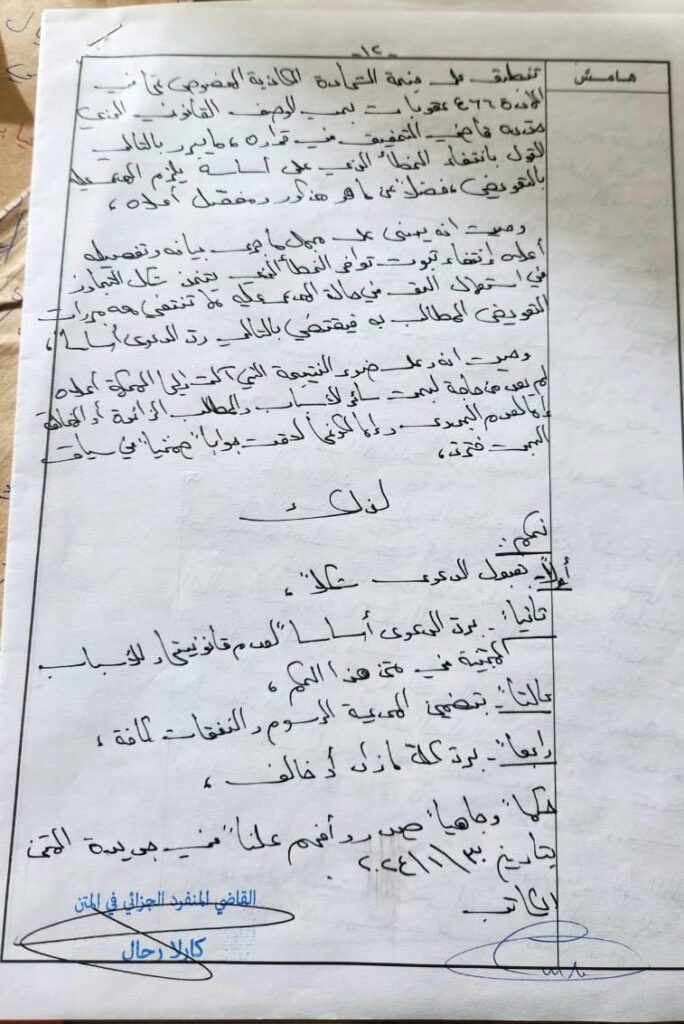 -١٢-
هامش
تنطبق على جنحة الشهادة الكاذبة المنصوص عنها في
المادة ٤٦٦ عقوبات بحسب الوصف القانوني الذي
قاضي التحقيق في قراره، ما يبرر بالتالي
القول بانتفاء الخطأ الذي على أساسه يلزم المدعى عليه
بالتعويض، فضلاً عن ما هو مذكور ومفصل أعلاه،
وحيث انه يبنى على مجمل ما جرى بيانه وتفصيله
أعلاه إنتفاء ثبوت توافر الخطأ الذي يتخذ شكل التجاوز
في استعمال الحق في حالة المدعى عليه ما تنتفي معه مبررات
التعويض المطالب به فيقتضي بالتالي رد الدعوى أساساً،
وحيث انه وعلى ضوء النتيجة التي آلت إليها المحكمة أعلاه
لم يعد من حاجة لبحث سائر الأسباب والمطالب الزائدة أو المخالفة
إما لعدم الجدوى وإما لكونها لاقت جواباً ضمنياً في سياق
البحث
لذلك
نحكم:
أولاً- بقبول الدعوى شكلاً،
ثانياً- برد الدعوى أساساً لعدم قانونيتها للأسباب
المبينة في متن هذا الحكم،
ثالثاً- بتضمين المدعية الرسوم والنفقات كافة،
رابعاً- برد كل ما زاد أو خالف،
حكماً وجاهياً صدر وأفهم علناً في جديدة المتن
بتاريخ ٣٠/١/٢٠٢٤.
الكاتب
القاضي المنفرد الجزائي في المتن
كارلا رحال